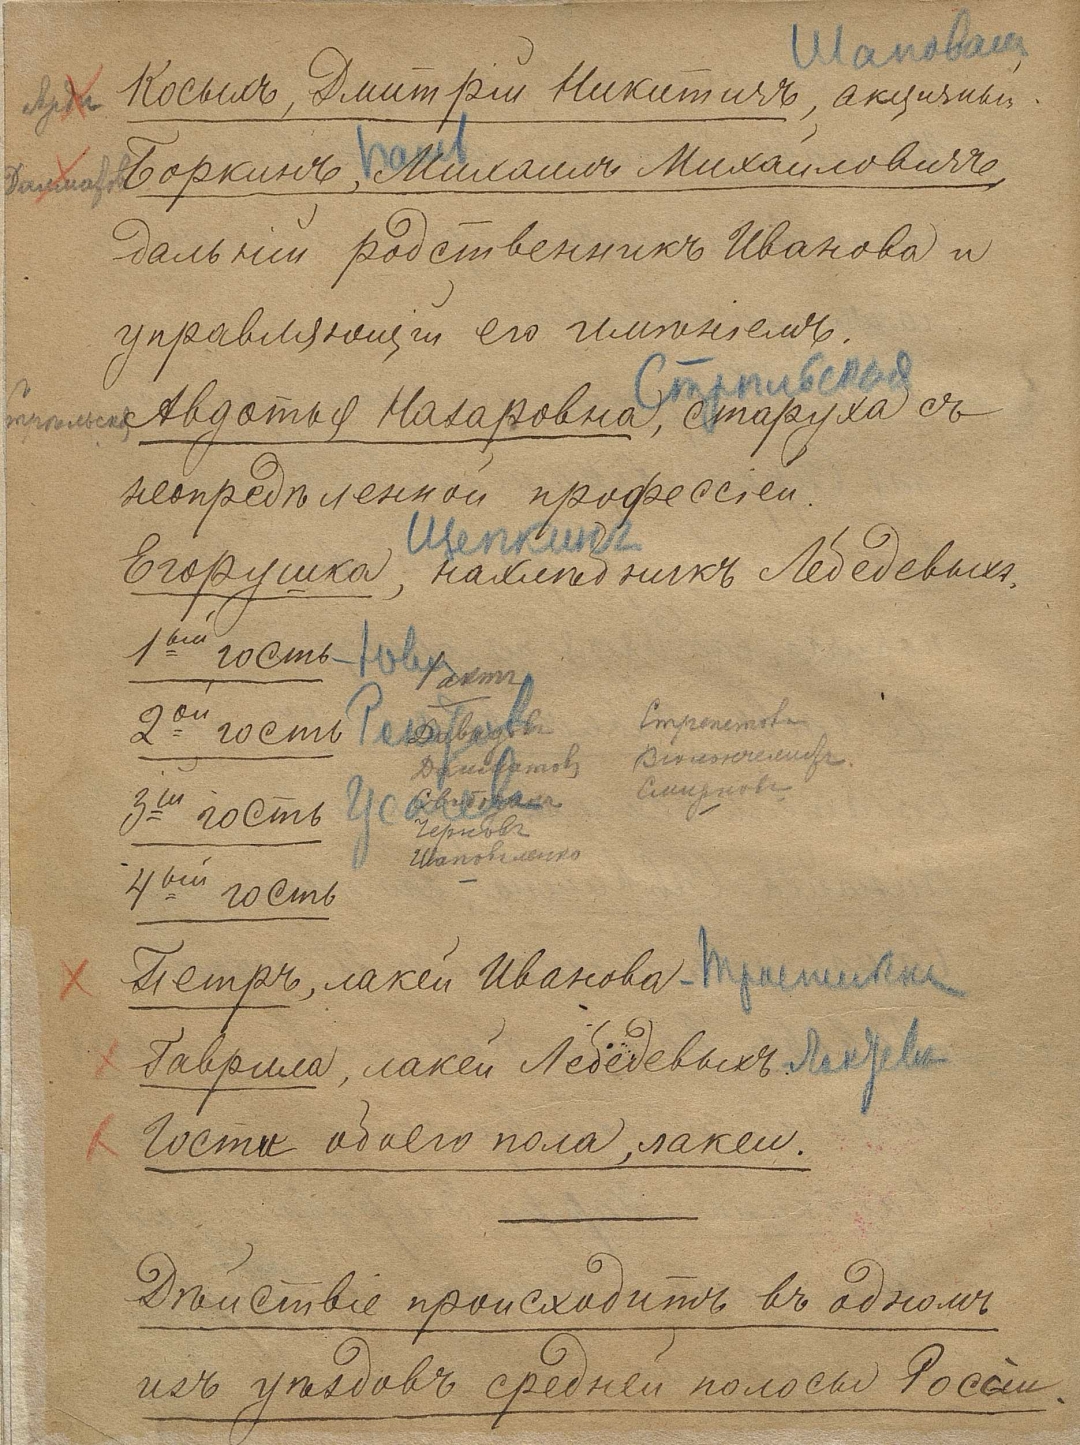 Шаповал
Косыхъ, Дмитрій Никитичъ, акцизный.
Далматовъ Боркинъ, Михаилъ Михайловичъ,
дальній родственникъ Иванова и
управляющій его имѣніемъ.
Стрѣльская
Авдотья Назаровна, старуха съ
неопредѣленной профессіей.
Щепкинъ
Егорушка, нахлѣбникъ Лебедевыхъ.
1ый гость
2ой гость
Далматовъ
3ій гость
Черновъ
Шаповаленко
Смирновъ
4ый гость
Петръ, лакей Иванова -
Гаврила, лакей Лебедевыхъ.
Гости обоего пола, лакеи.
Дѣйствіе происходитъ въ одномъ
изъ уѣздовъ средней полосы Россіи.